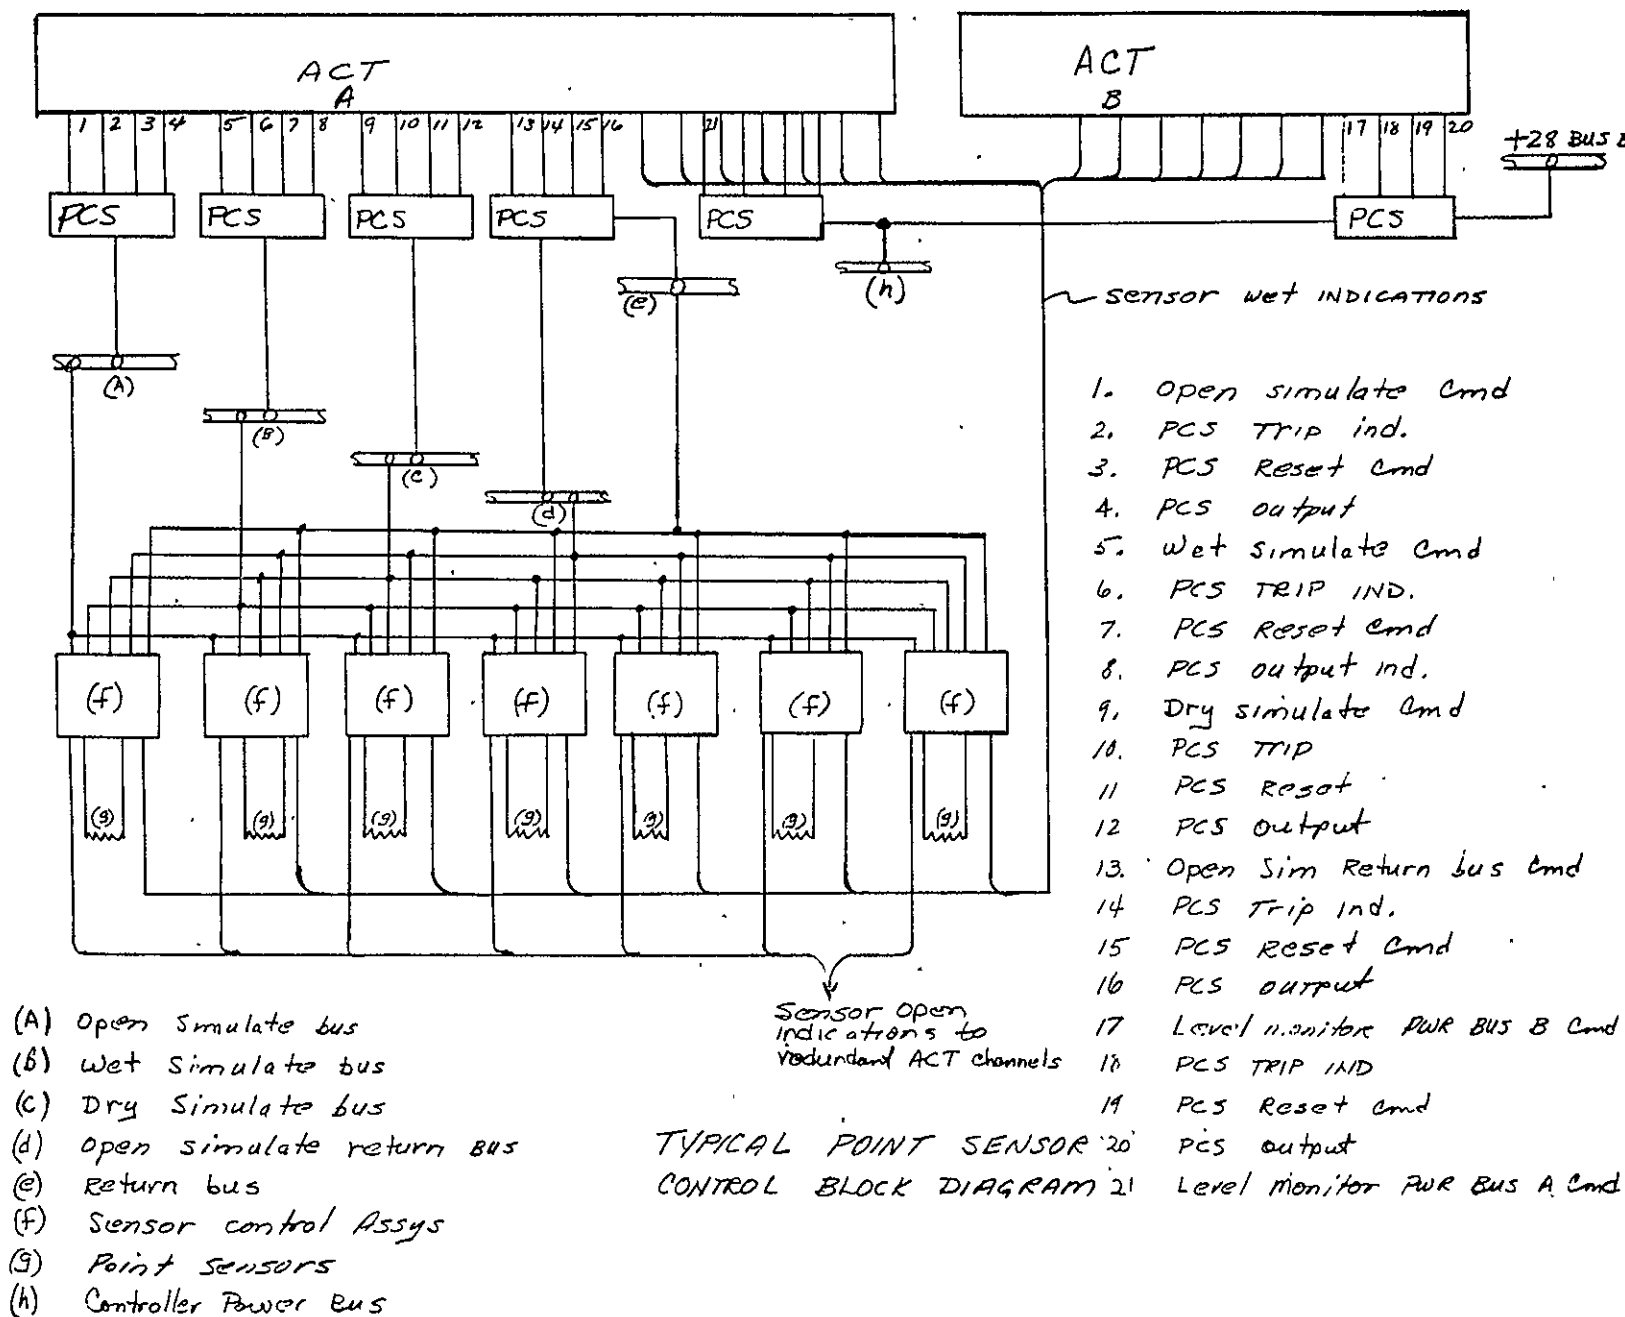 ACT
A
ACT
B
1 2 3 4 5 6 7 8 9 10 11 12 13 14 15 16 21 17 18 19 20
+28 BUS B
PCS PCS PCS PCS PCS PCS
(e) (h)
Sensor wet INDICATIONS
(A)
(B)
(C)
(d)
(f) (f) (f) (f) (f) (f) (f)
(g) (g) (g) (g) (g) (g) (g)
1. Open simulate Cmd
2. PCS TRIP ind.
3. PCS Reset Cmd
4. PCS output
5. Wet simulate Cmd
6. PCS TRIP IND.
7. PCS Reset Cmd
8. PCS output ind.
9. Dry simulate Cmd
10. PCS TRIP
11 PCS Reset
12 PCS output
13. Open Sim Return bus Cmd
14 PCS Trip Ind.
15 PCS Reset Cmd
16 PCS output
17 Level monitor PWR BUS B Cmd
18 PCS TRIP IND
19 PCS Reset Cmd
20 PCS output
21 Level Monitor PWR BUS A Cmd
Sensor Open
indications to
redundant ACT channels
(A) Open Simulate bus
(B) Wet Simulate bus
(C) Dry Simulate bus
(d) Open simulate return Bus
(e) Return bus
(f) Sensor control Assys
(g) Point Sensors
(h) Controller Power Bus
TYPICAL POINT SENSOR
CONTROL BLOCK DIAGRAM